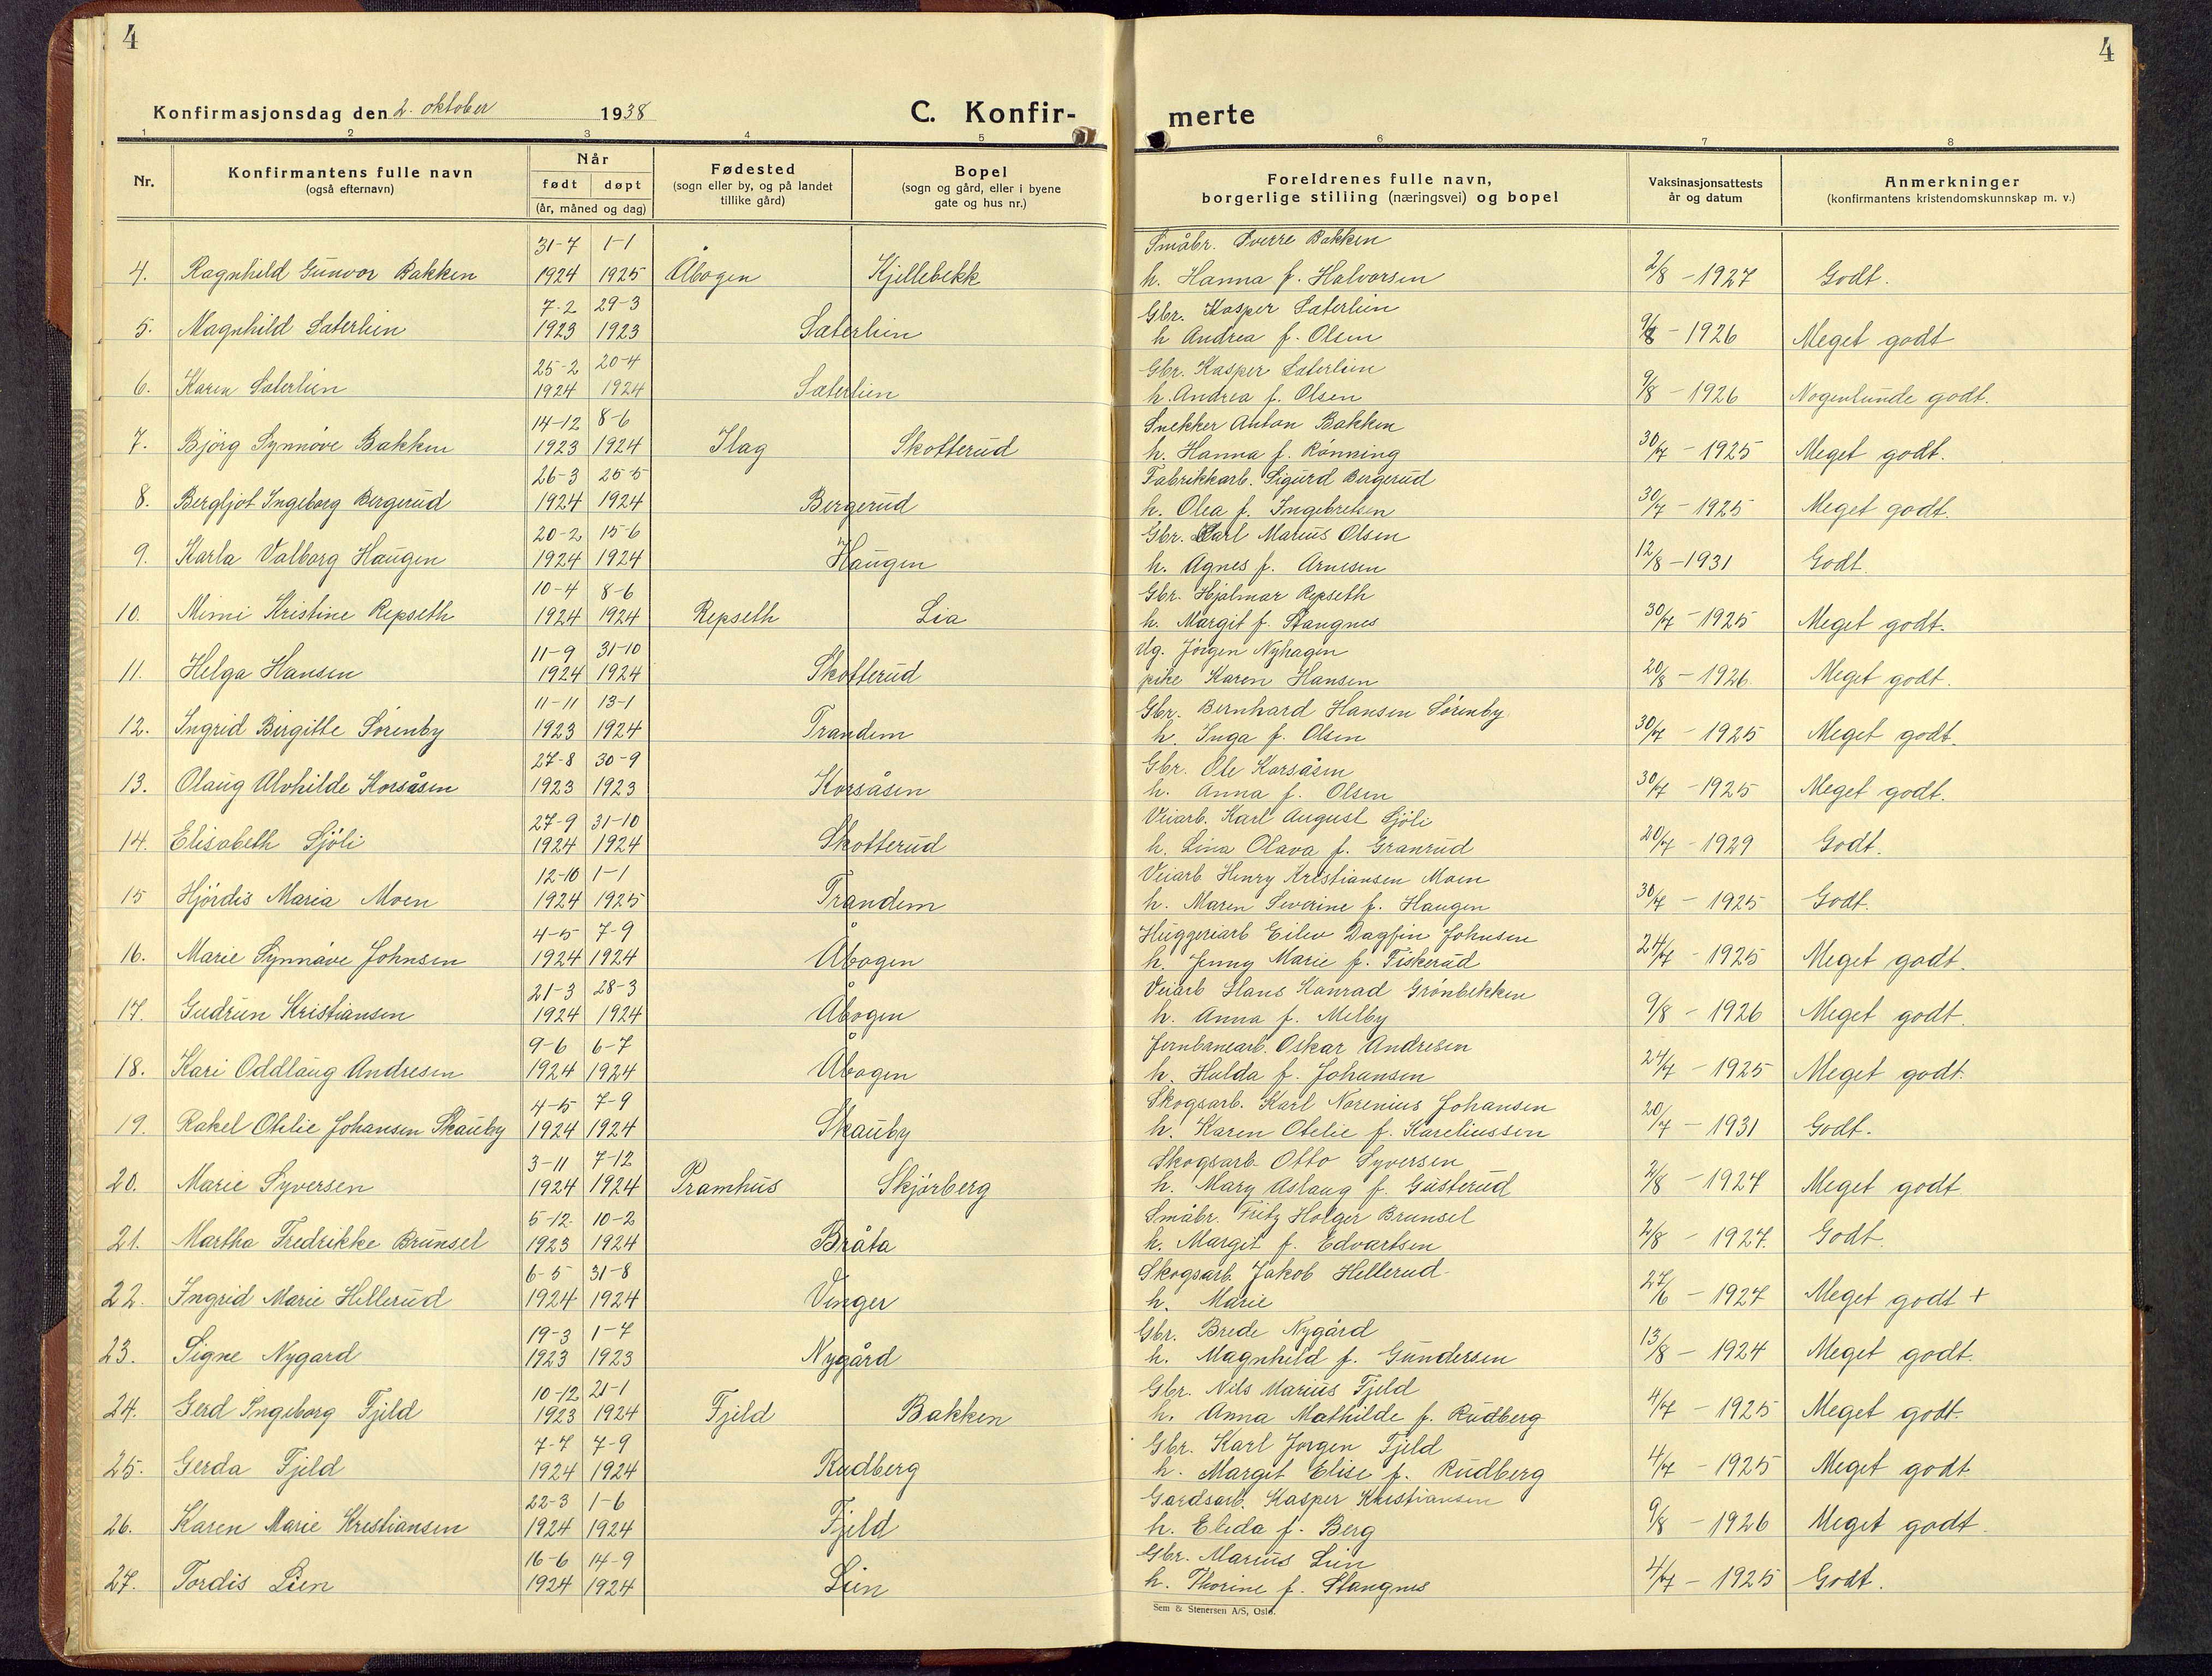 4
4
Konfirmasjonsdag den 2. oktober 1938
C. Konfir-
merte
1 2 3 4 5 6 7 8
Nr.
Konfirmantens fulle navn
(også efternavn)
Når
født døpt
(år, måned og dag)
Fødested
(sogn eller by, og på landet
tillike gård)
Bopel
(sogn og gård, eller i byene
gate og hus nr.)
Foreldrenes fulle navn,
borgerlige stilling (næringsvei) og bopel
Vaksinasjonsattests
år og datum
Anmerkninger
(konfirmantens kristendomskunnskap m. v.)
31-7 1-1 Småbr. Sverre Bakken
4. Ragnhild Gunvor Bakken 1924 1925 Åbogen Kjellebekk h. Hanna f. Halvorsen 2/8 - 1927 Godt.
7-2 29-3 Gbr. Kasper Sæterlien
5. Magnhild Sæterlien 1923 1923 Sæterlien h Andrea f. Olsen 9/8 - 1926 Meget godt
25-2 20-4 Gbr. Kasper Sæterlien
6. Karen Sæterlien 1924 1924 Sæterlien h. Andrea f. Olsen 9/8 - 1926 Nogenlunde godt.
14-12 8-6 Snekker Anton Bakken
7. Bjørg Synnøve Bakken 1923 1924 Ilag Skotterud h. Hanna f. Rønning 30/7 - 1925 Meget godt.
26-3 25-5 Fabrikkarb. Sigurd Bergerud
8. Bergljot Ingeborg Bergerud 1924 1924 Bergerud h. Olea f. Ingebretsen 30/7 - 1925 Meget godt.
20-2 15-6 Gbr. Karl Marius Olsen
9. Karla Valborg Haugen 1924 1924 Haugen h. Agnes f. Arnesen 12/8 - 1931 Godt.
10-4 8-6 Gbr. Hjalmar Repseth
10. Mimi Kristine Repseth 1924 1924 Repseth Lia h. Margit f. Stangnes 30/7 - 1925 Meget godt.
11-9 31-10 Ug. Jørgen Nyhagen
11. Helga Hansen 1924 1924 Skotterud pike Karen Hansen 20/8 - 1926 Meget godt.
11-11 13-1 Gbr. Bernhard Hansen Sørenby
12. Ingrid Birgitte Sørenby 1923 1924 Trandem h. Inga f. Olsen 30/7 - 1925 Meget godt.
27-8 30-9 Gbr. Ole Korsåsen
13. Olaug Alvhilde Korsåsen 1923 1923 Korsåsen h. Anna f. Olsen 30/7 - 1925 Meget godt.
27-9 31-10 Veiarb. Karl August Sjøli
14. Elisabeth Sjøli 1924 1924 Skotterud h. Lina Olava f. Granrud 20/7 - 1929 Godt.
12-10 1-1 Veiarb Henry Kristiansen Moen
15 Hjørdis Maria Moen 1924 1925 Trandem h. Maren Severine f. Haugen 30/7 - 1925 Godt.
4-5 7-9 Huggeriarb Eilev Dagfin Johnsen
16. Marie Synnøve Johnsen 1924 1924 Åbogen h. Jenny Marie f. Fiskerud 24/7 - 1925 Meget godt.
21-3 28-3 Veiarb Hans Konrad Grønbekken
17. Gudrun Kristiansen 1924 1924 Åbogen h. Anna f. Melby 9/8 - 1926 Meget godt.
9-6 6-7 Jernbanearb. Oskar Andresen
18. Kari Oddlaug Andresen 1924 1924 Åbogen h. Hulda f. Johansen 24/7 - 1925 Meget godt.
4-5 7-9 Skogsarb. Karl Norenius Johansen
19. Rakel Otelie Johansen Skauby 1924 1924 Skauby h. Karen Otelie f. Kareliussen 20/7 - 1931 Godt.
3-11 7-12 Skogsarb. Otto Syversen
20. Marie Syversen 1924 1924 Pramhus Skjørberg h. Mary Aslaug f. Gusterud 2/8 - 1927 Meget godt
5-12. 10-2 Småbr. Fritz Holger Brunsel
21. Martha Fredrikke Brunsel 1923 1924 Bråta h. Margit f. Edvartsen 2/8 - 1927. Godt.
6-5 31-8 Skogsarb. Jakob Hellerud
22. Ingrid Marie Hellerud 1924 1924 Vinger h. Marie 27/6 - 1927 Meget godt +
19-3 1-7 Gbr. Brede Nygård
23. Signe Nygard 1923 1923 Nygård h. Magnhild f. Gundersen 13/8 - 1924 Meget godt.
10-12 21-1 Gbr. Nils Marius Fjeld
24. Gerd Ingeborg Fjeld 1923 1924 Fjeld Bakken h. Anna Mathilde f. Rudberg 4/7 - 1925 Meget godt.
7-7 7-9 Gbr. Karl Jørgen Fjeld
25. Gerda Fjeld 1924 1924 Rudberg h. Margit Elise f. Rudberg 4/7 - 1925 Meget godt
22-3 1-6 Gardsarb. Kasper Kristiansen
26. Karen Marie Kristiansen 1924 1924 Fjeld h. Elida f. Berg 9/8 - 1926 Meget godt.
16-6 14-9 Gbr. Marius Lien
27. Tordis Lien 1924 1924 Lien h. Thorine f. Stangnes 4/7 - 1925 Godt.
Sem & Stenersen A/S, Oslo.